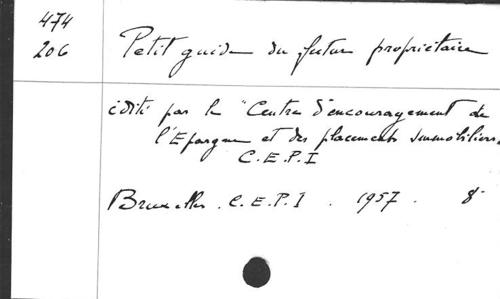 474
206
Petit guide du futur propriétaire
édité par le "Centre d'encouragement de
l'Epargne et des placements immobiliers.
C.E.P.I
Bruxelles. C.E.P.I. 1957. 8°